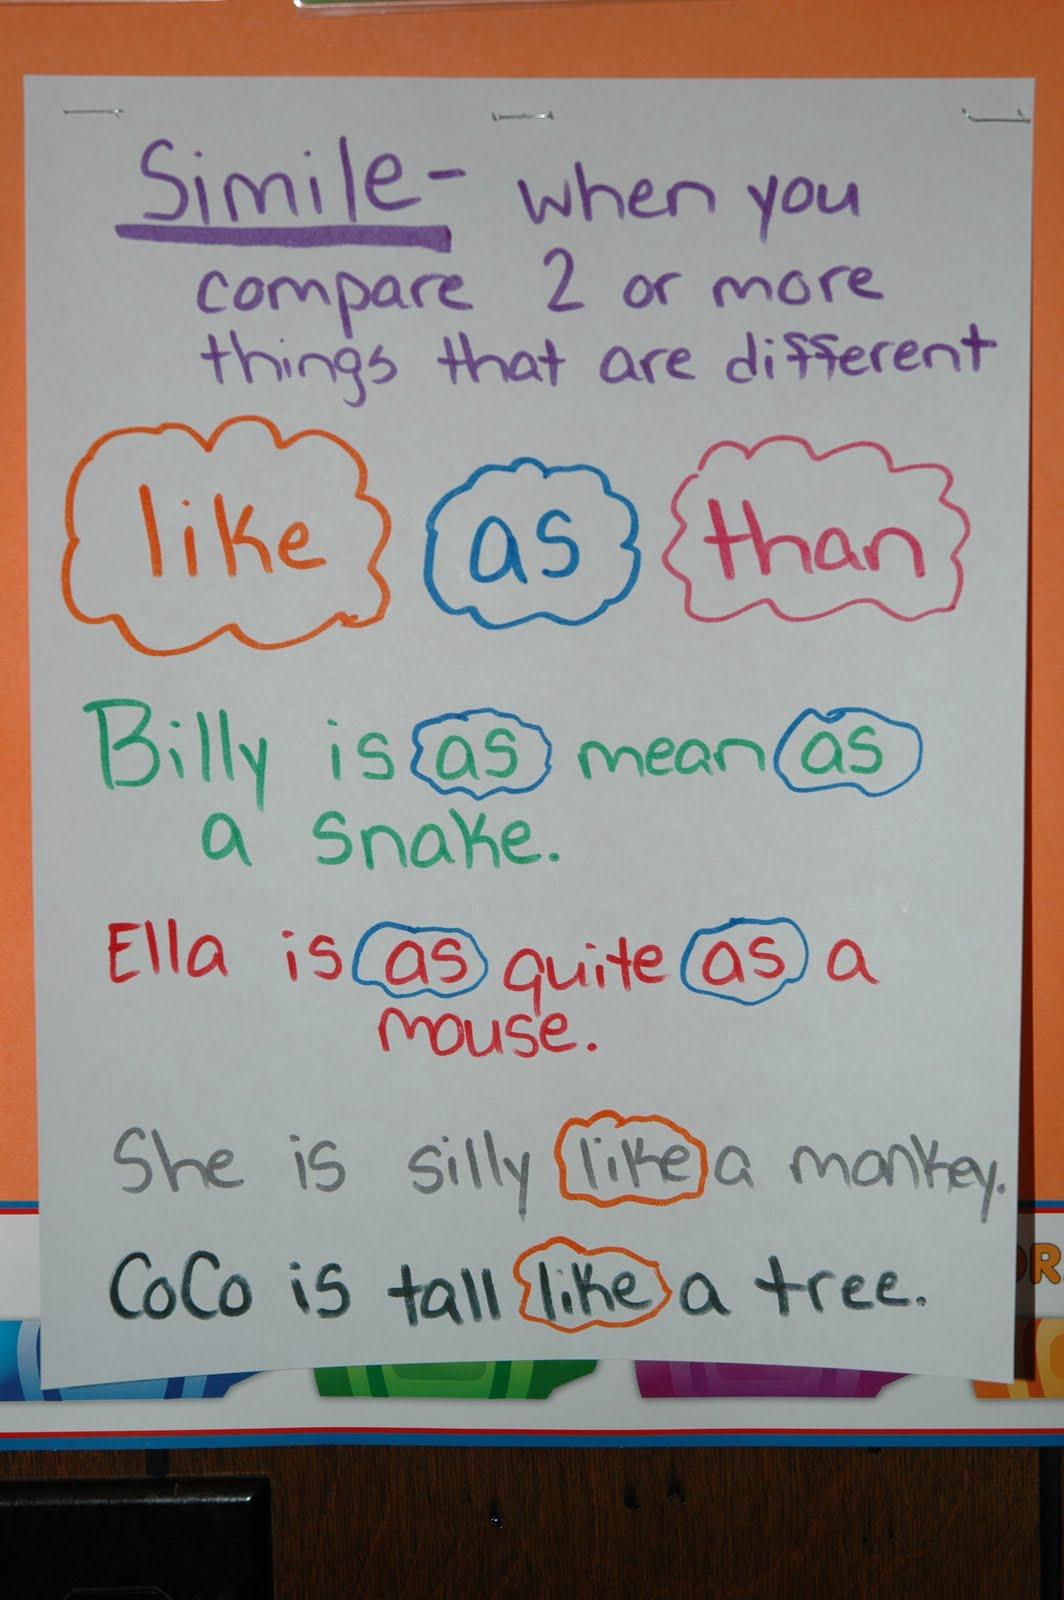 Simile- when you
compare 2 or more
things that are different
like as than
Billy is as mean as
a snake.
Ella is as quite as a
mouse.
She is silly like a monkey.
CoCo is tall like a tree.
OR